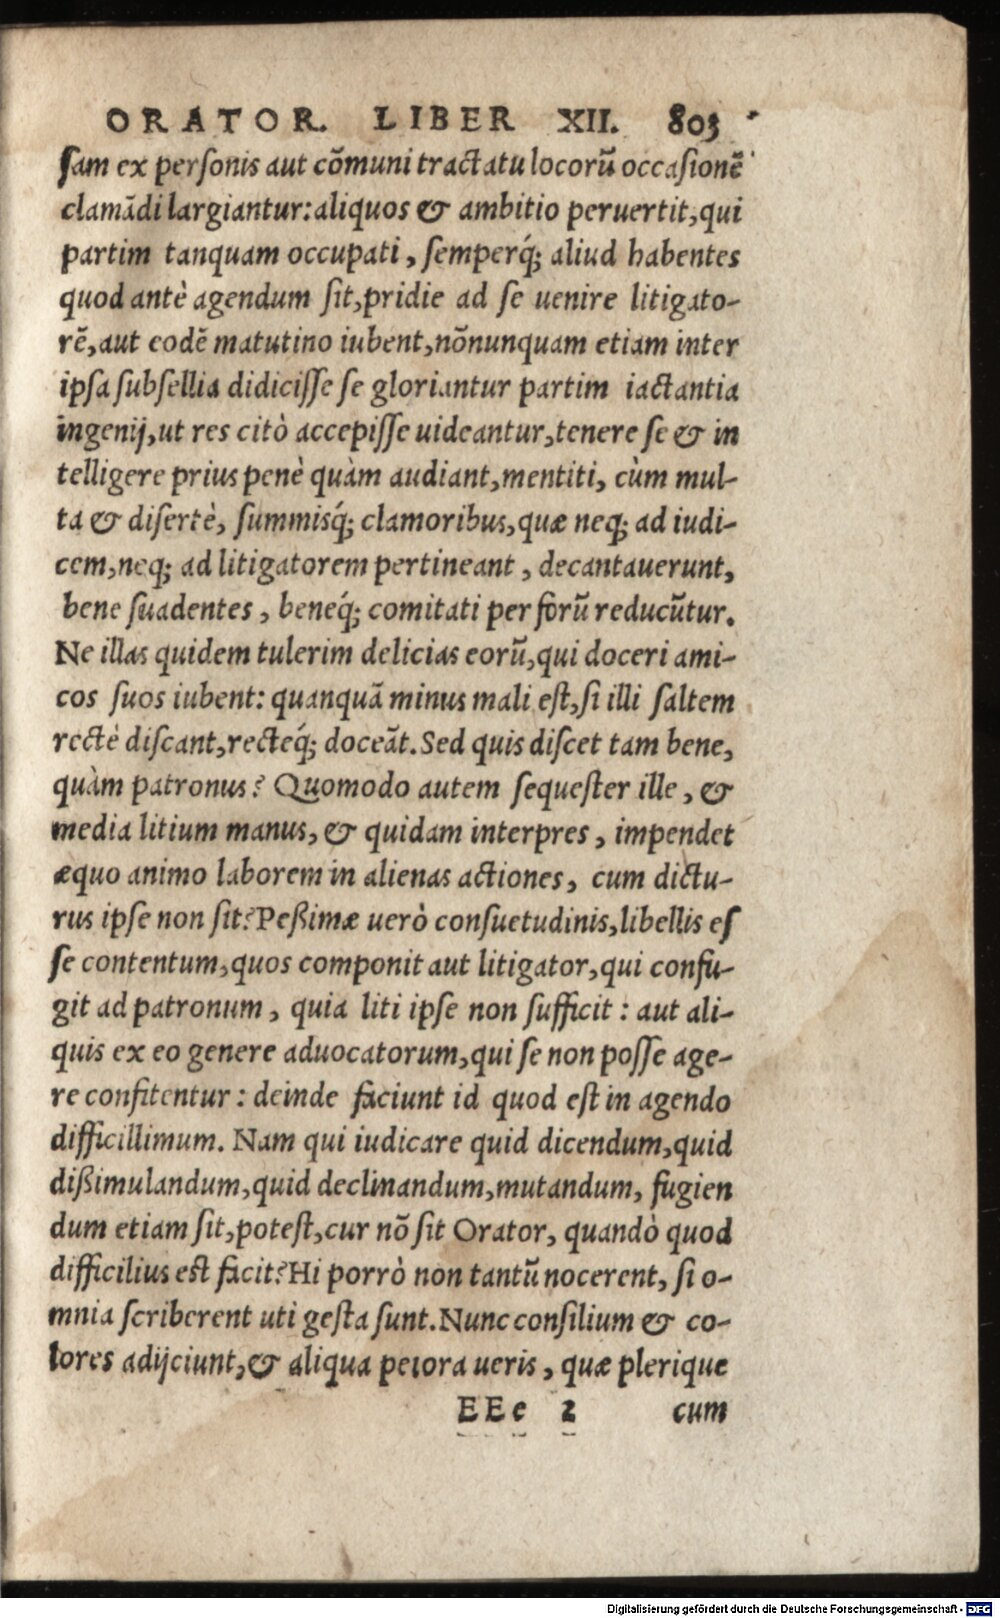 ORATOR. LIBER XII. 803
ſam ex perſonis aut cõmuni tractatu locorũ occaſionẽ
clamãdi largiantur: aliquos & ambitio peruertit, qui
partim tanquam occupati, ſemperq́; aliud habentes
quod antè agendum ſit, pridie ad ſe uenire litigato-
rẽ, aut eodẽ matutino iubent, nõnunquam etiam inter
ipſa ſubſellia didiciſſe ſe gloriantur partim iactantia
ingenij, ut res citò accepiſſe uideantur, tenere ſe & in
telligere prius penè quàm audiant, mentiti, cùm mul-
ta & diſertè, ſummisq́; clamoribus, quæ neq; ad iudi-
cem, neq; ad litigatorem pertineant, decantauerunt,
bene ſuadentes, beneq́; comitati per forũ reducũtur.
Ne illas quidem tulerim delicias eorũ, qui doceri ami-
cos ſuos iubent: quanquã minus mali eſt, ſi illi ſaltem
rectè diſcant, recteq́; doceãt. Sed quis diſcet tam bene,
quàm patronus? Quomodo autem ſequeſter ille, &
media litium manus, & quidam interpres, impendet
æquo animo laborem in alienas actiones, cum dictu-
rus ipſe non ſit? Peßimæ uerò conſuetudinis, libellis eſ
ſe contentum, quos componit aut litigator, qui confu-
git ad patronum, quia liti ipſe non ſufficit: aut ali-
quis ex eo genere aduocatorum, qui ſe non poſſe age-
re confitentur: deinde faciunt id quod eſt in agendo
difficillimum. Nam qui iudicare quid dicendum, quid
dißimulandum, quid declinandum, mutandum, fugien
dum etiam ſit, poteſt, cur nõ ſit Orator, quandò quod
difficilius eſt facit? Hi porrò non tantũ nocerent, ſi o-
mnia ſcriberent uti geſta ſunt. Nunc conſilium & co-
lores adijciunt, & aliqua peiora ueris, quæ plerique
EEe 2 cum
Digitalisierung gefördert durch die Deutsche Forschungsgemeinschaft - DFG